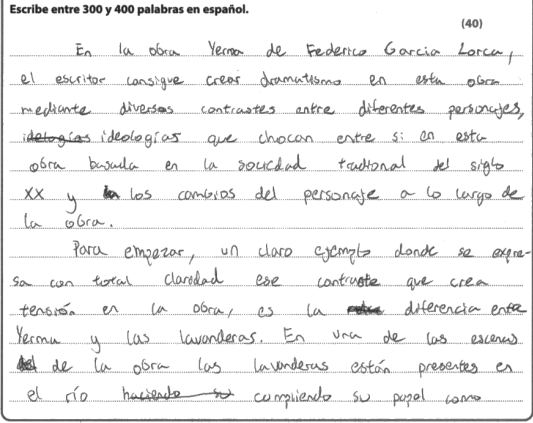 Escribe entre 300 y 400 palabras en español.
(40)
En la obra Yerma de Federico Garcia Lorca,
el escritor consigue crear dramatismo en esta obra
mediante diversos contrastes entre diferentes personajes,
idelogías ideologías que chocan entre si en esta
obra basada en la sociedad tradional del siglo
XX y la los cambios del personaje a lo largo de
la obra.
Para empezar, un claro ejemplo donde se expre-
sa con total claridad ese contraste que crea
tensión en la obra, es la diferencia entre
Yerma y las lavanderas. En una de las escenas
de la obra las lavanderas están presentes en
el río haciendo su cumpliendo su papel como